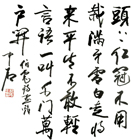 头上红冠不用
裁满身雪白走将
来平生不敢轻
言语一叫千门万
户开